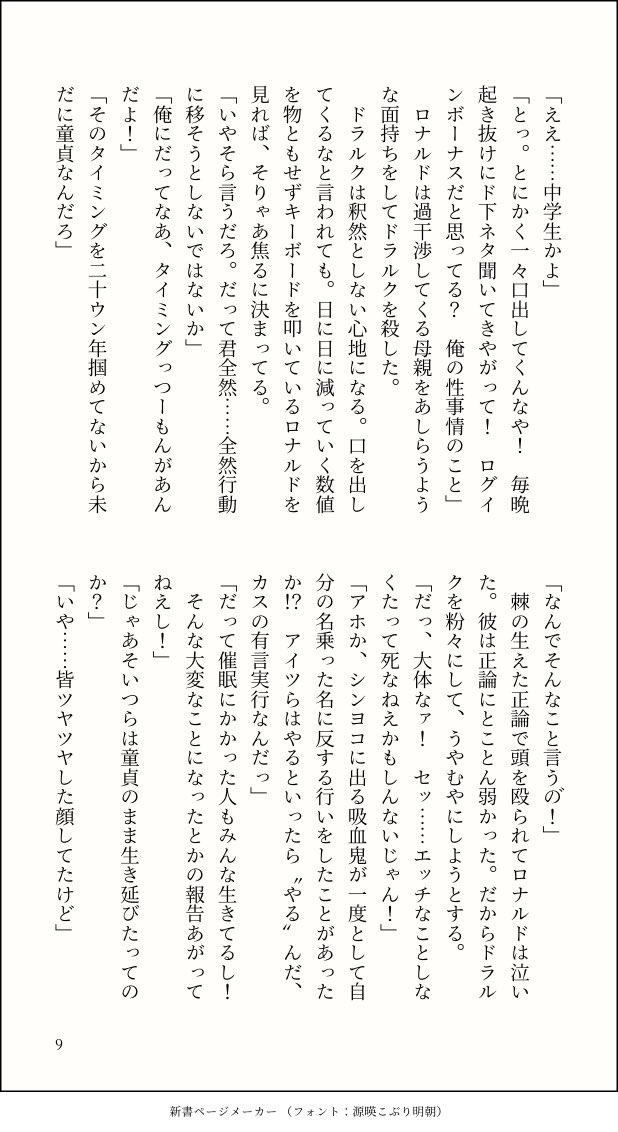 「ええ……中学生かよ」
「とっ。とにかく一々口出してくんなや！　毎晩
起き抜けにド下ネタ聞いてきやがって！　ログイ
ンボーナスだと思ってる？　俺の性事情のこと」
　ロナルドは過干渉してくる母親をあしらうよう
な面持ちをしてドラルクを殺した。
　ドラルクは釈然としない心地になる。口を出し
てくるなと言われても。日に日に減っていく数値
を物ともせずキーボードを叩いているロナルドを
見れば、そりゃあ焦るに決まってる。
「いやそら言うだろ。だって君全然……全然行動
に移そうとしないではないか」
「俺にだってなあ、タイミングっつーもんがあん
だよ！」
「そのタイミングを二十ウン年掴めてないから未
だに童貞なんだろ」
「なんでそんなこと言うの゙！」
　棘の生えた正論で頭を殴られてロナルドは泣い
た。彼は正論にとことん弱かった。だからドラル
クを粉々にして、うやむやにしようとする。
「だっ、大体なァ！　セッ……エッチなことしな
くたって死なねえかもしんないじゃん！」
「アホか、シンヨコに出る吸血鬼が一度として自
分の名乗った名に反する行いをしたことがあった
か!?　アイツらはやるといったら〝やる〟んだ、
カスの有言実行なんだっ」
「だって催眠にかかった人もみんな生きてるし！
　そんな大変なことになったとかの報告あがって
ねえし！」
「じゃあそいつらは童貞のまま生き延びたっての
か？」
「いや……皆ツヤツヤした顔してたけど」
9
新書ページメーカー（フォント：源暎こぶり明朝）